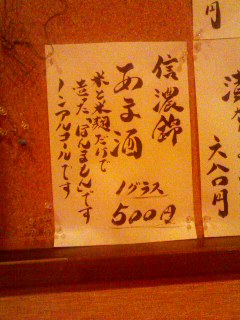 信濃錦
あま酒
1グラス
500円
米と米麹だけで
造った、ほんまもんです
ノンアルコールです
円
六八〇円